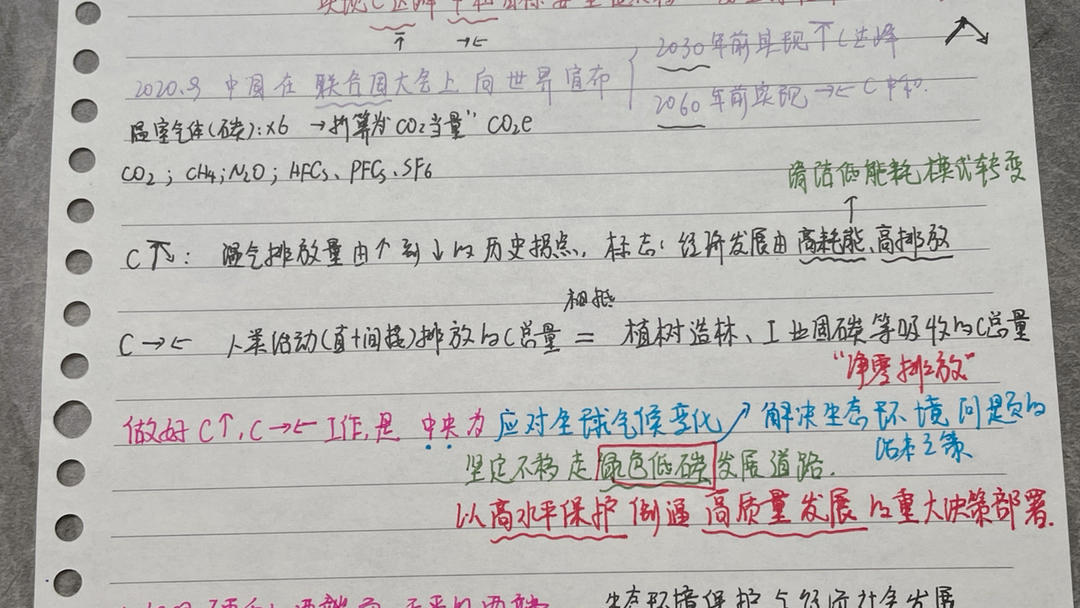 2020.9 中国在联合国大会上向世界宣布
2030年前实现↑C达峰
2060年前实现→←C中和.
温室气体(碳):×6 →折算为CO2当量" CO2e
CO2; CH4; N2O; HFCs、PFCs、SF6
清洁低能耗模式转变
↑
C↑↘: 温气排放量由↑到↓的历史拐点. 标志:经济发展由高耗能、高排放
相抵
C→← 人类活动(直+间接)排放的C总量 = 植树造林、工业固碳等吸收的C总量
"净零排放"
做好C↑,C→←工作,是 中央为应对全球气候变化↗解决生态环境问题的
治本之策
坚定不移走绿色低碳发展道路.
以高水平保护倒逼高质量发展的重大决策部署.
生态环境保护与经济社会发展